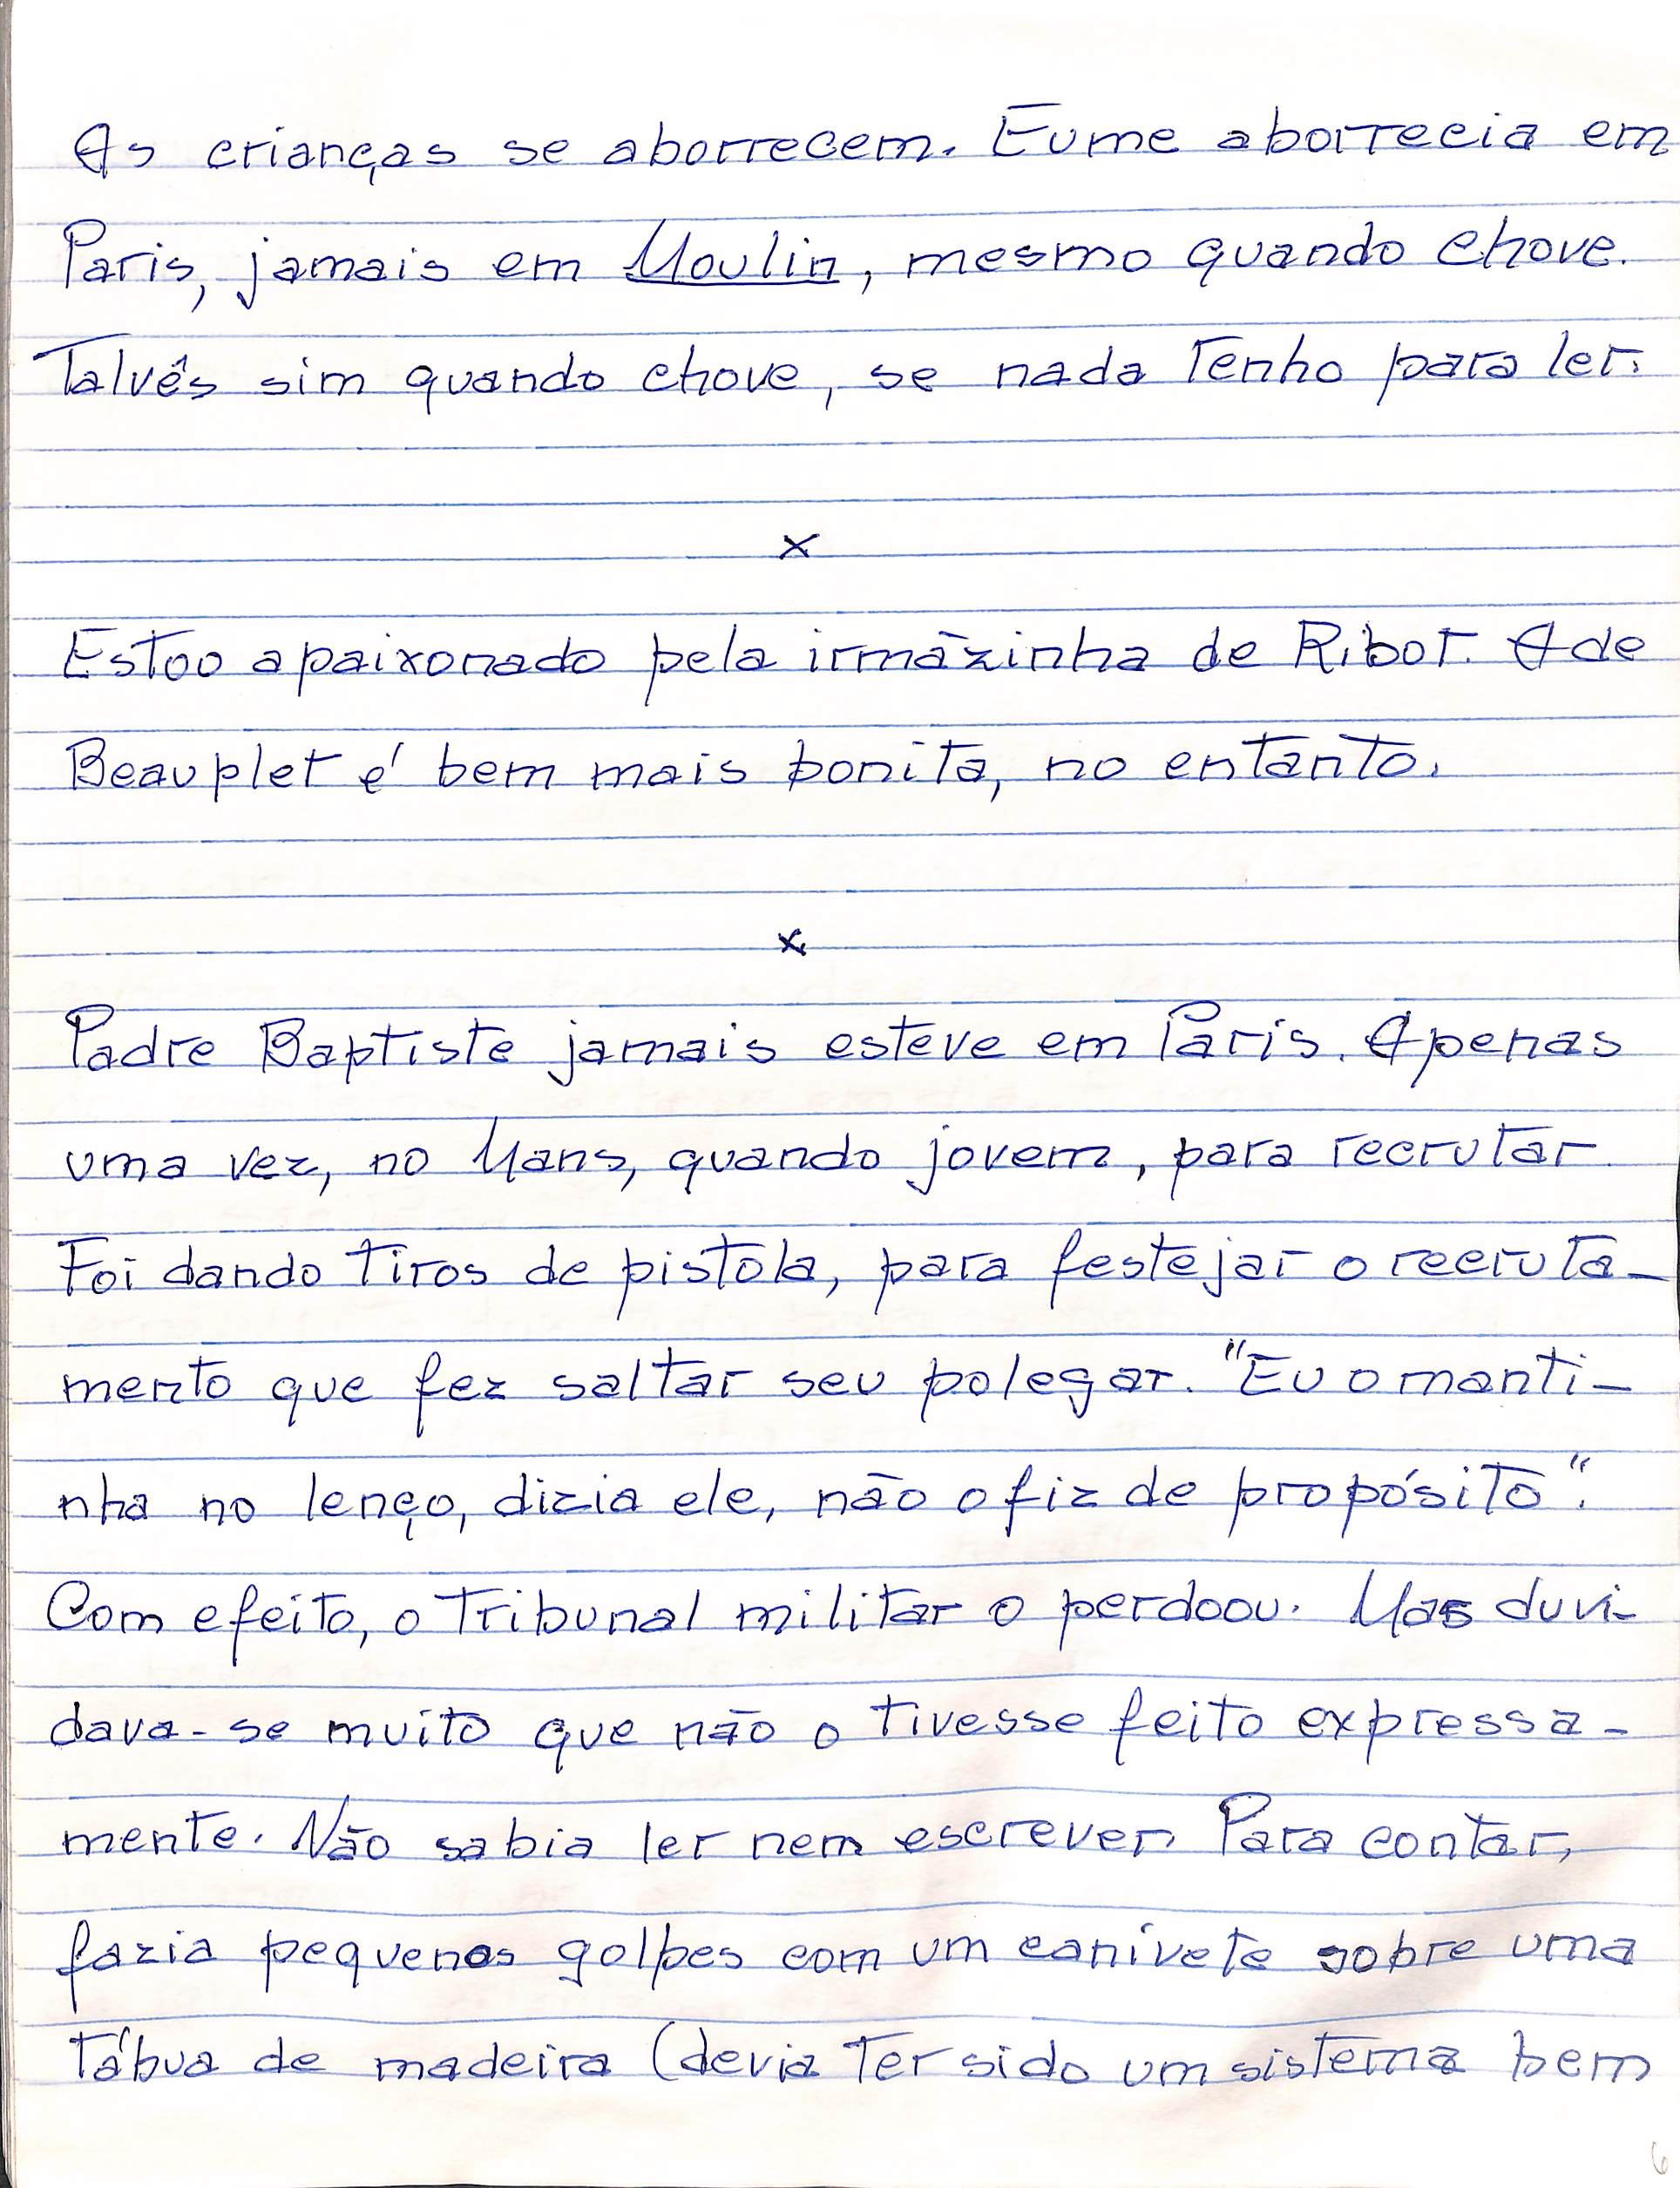 As crianças se aborrecem. Eu me aborrecia em
Paris, jamais em Moulin, mesmo quando chove.
Talvês sim quando chove, se nada tenho para ler.
x
Estou apaixonado pela irmãzinha de Ribot. A de
Beauplet é bem mais bonita, no entanto.
x
Padre Baptiste jamais esteve em Paris. Apenas
uma vez, no Mans, quando jovem, para recrutar
Foi dando tiros de pistola, para festejar o recruta-
mento que fez saltar seu polegar. "Eu o manti-
nha no lenço, dizia ele, não o fiz de propósito".
Com efeito, o Tribunal militar o perdoou. Mas duvi-
dava-se muito que não o tivesse feito expressa-
mente. Não sabia ler nem escrever. Para contar,
fazia pequenos golpes com um canivete sobre uma
tábua de madeira (devia ter sido um sistema bem
6